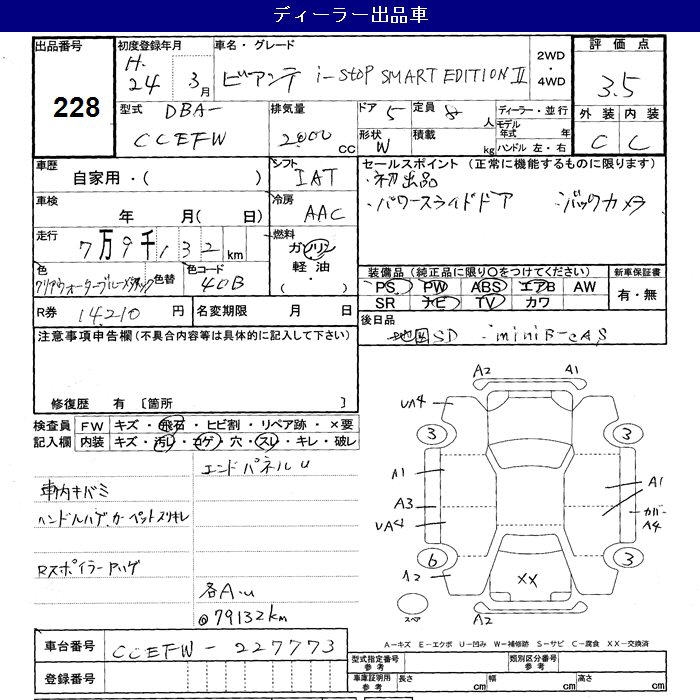 ディーラー出品車
出品番号
228
初度登録年月
H.
24 3月
車名・グレード
ビアンテ i-stop SMART EDITION II
2WD
・
4WD
評価点
3.5
外装 内装
C C
型式
DBA-
CCEFW
排気量
2000 cc
ドア 5
定員 8 人
形状 W
積載 kg
ディーラー・並行
モデル年式 年
ハンドル 左・右
車歴
自家用・( )
シフト
IAT
セールスポイント (正常に機能するものに限ります)
・初出品
・パワースライドドア ・バックカメラ
車検
年 月( 日)
冷房
AAC
走行
7万9千132km
燃料
ガソリン
軽油
( ・ )
色
色替
色コード
40B
装備品(純正品に限り○をつけてください)
新車保証書
PS PW ABS エアB AW
SR ナビ TV カワ
有・無
R券 14210 円
名変期限 月 日
後日品
地図SD ・miniB-CAS
注意事項申告欄(不具合内容等は具体的に記入して下さい)
修復歴 有 [箇所 ]
検査員 FW キズ・飛石・ヒビ割・リペア跡・×要
記入欄 内装 キズ・汚レ・コゲ・穴・スレ・キレ・破レ
エンドパネルu
車内キバミ
ハンドルハゲ.カーペットスリキレ
Rスポイラーハゲ
各A.u
@79132km
A2 A1
UA4
3 3
A1 A1
A3
カバー
UA4 A4
6 3
A2 XX
スペア
A2
A-キズ E-エクボ U-凹み W-補修跡 S-サビ C-腐食 XX-交換済
車台番号 CCEFW-227773
登録番号
型式指定番号
参考
類別区分番号
参考
車庫証明用
参考
長さ cm 幅 cm 高さ cm